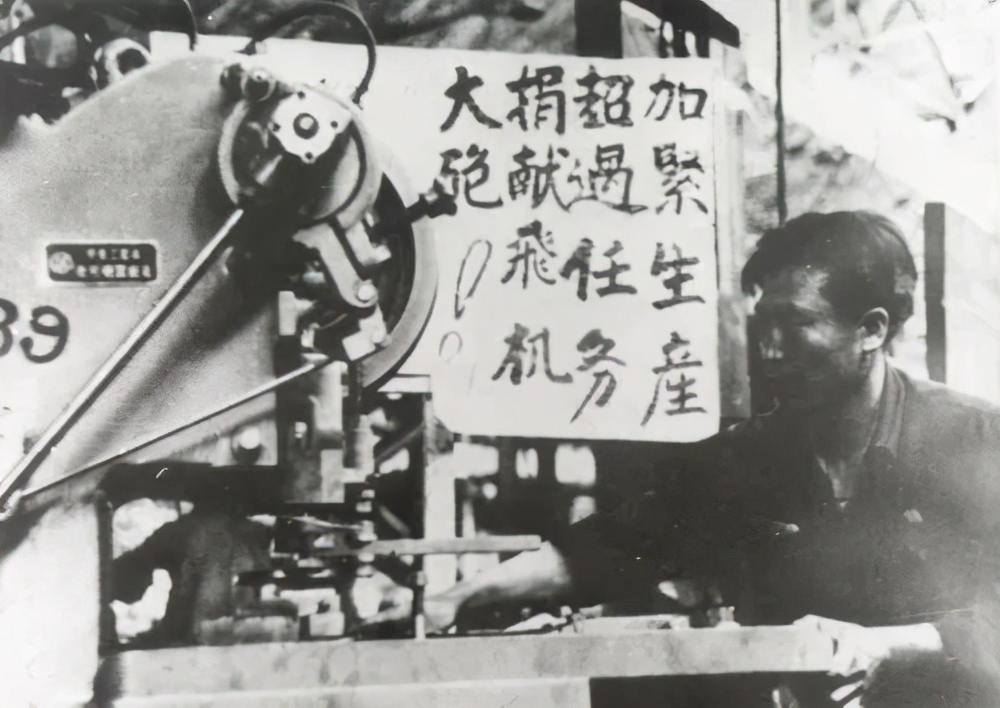 加緊生産
超過任务
捐献飛机
大砲!
39